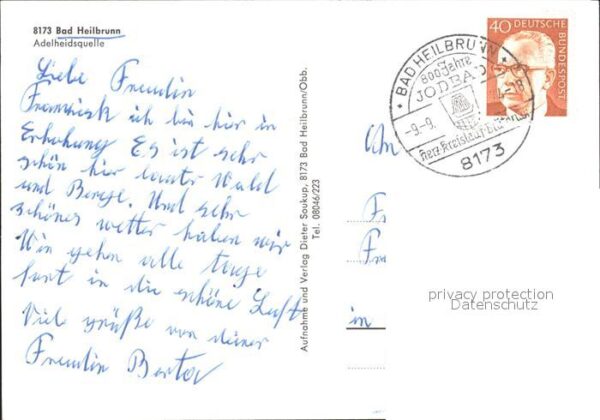 8173 Bad Heilbrunn
Adelheidsquelle
Liebe Freundin
ich bin hier in
Erhohung Es ist sehr
schön hier lauter Wald
und Berge. Und sehr
schönes wetter haben wir
Wir gehen alle tage
fort in die schöne Luft
Viel grüße von deiner
Freundin Berta
Aufnahme und Verlag Dieter Soukup, 8173 Bad Heilbrunn/Obb.
Tel. 08046/223
BAD HEILBRUNN
800 Jahre
JODBAD
-9.-9.
8173
40
DEUTSCHE
BUNDESPOST
An
Fr
in
privacy protection
Datenschutz